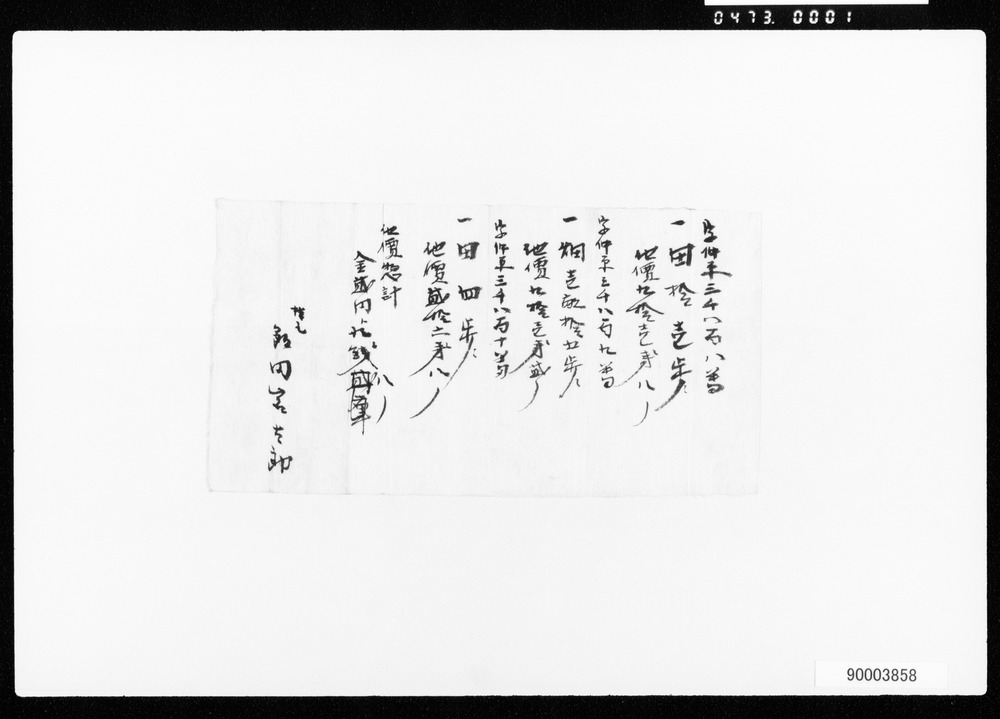 0473.0001
字仲平三千八百八番
一田拾壱歩
地價九拾壱銭八厘
字仲平三千八百九番
一畑壱畝拾廿歩
地價九拾壱銭弐厘
字仲平三千八百十番
一田四歩
地價弐拾六銭八厘
地價惣計
金弐円九銭八厘
飯田岩太郎
90003858